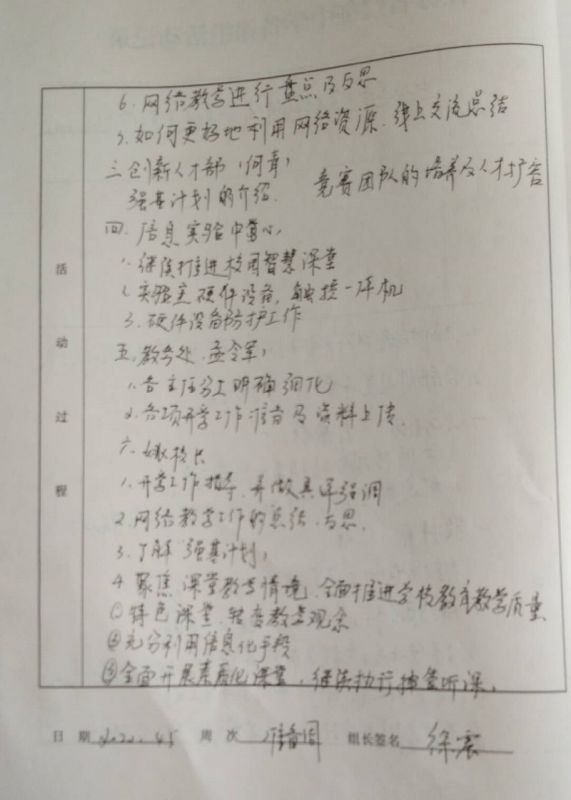 6. 网络教学进行盘点及反思
7. 如何更好地利用网络资源、线上交流总结
三、创新人才部（何青）
强基计划的介绍. 竞赛团队的培养及人才扩容
四. 信息实验中心:
1. 继续推进校园智慧课堂
2. 实验室硬件设备, 触控一体机
3. 硬件设备防护工作
五、教务处 孟令军:
1. 各主任分工明确细化
2. 各项开学工作准备及资料上传.
六、校长
1. 开学工作指导, 并做具体强调
2. 网络教学工作的总结、反思.
3. 了解"强基计划"
4. 聚焦课堂教学情境, 全面推进学校教育教学质量
①特色课堂, 转变教学观念
②充分利用信息化手段
③全面开展素质化课堂, 继续执行推签听课,
活动过程
日期 2020.4.5 周次 准备周 组长签名 徐震